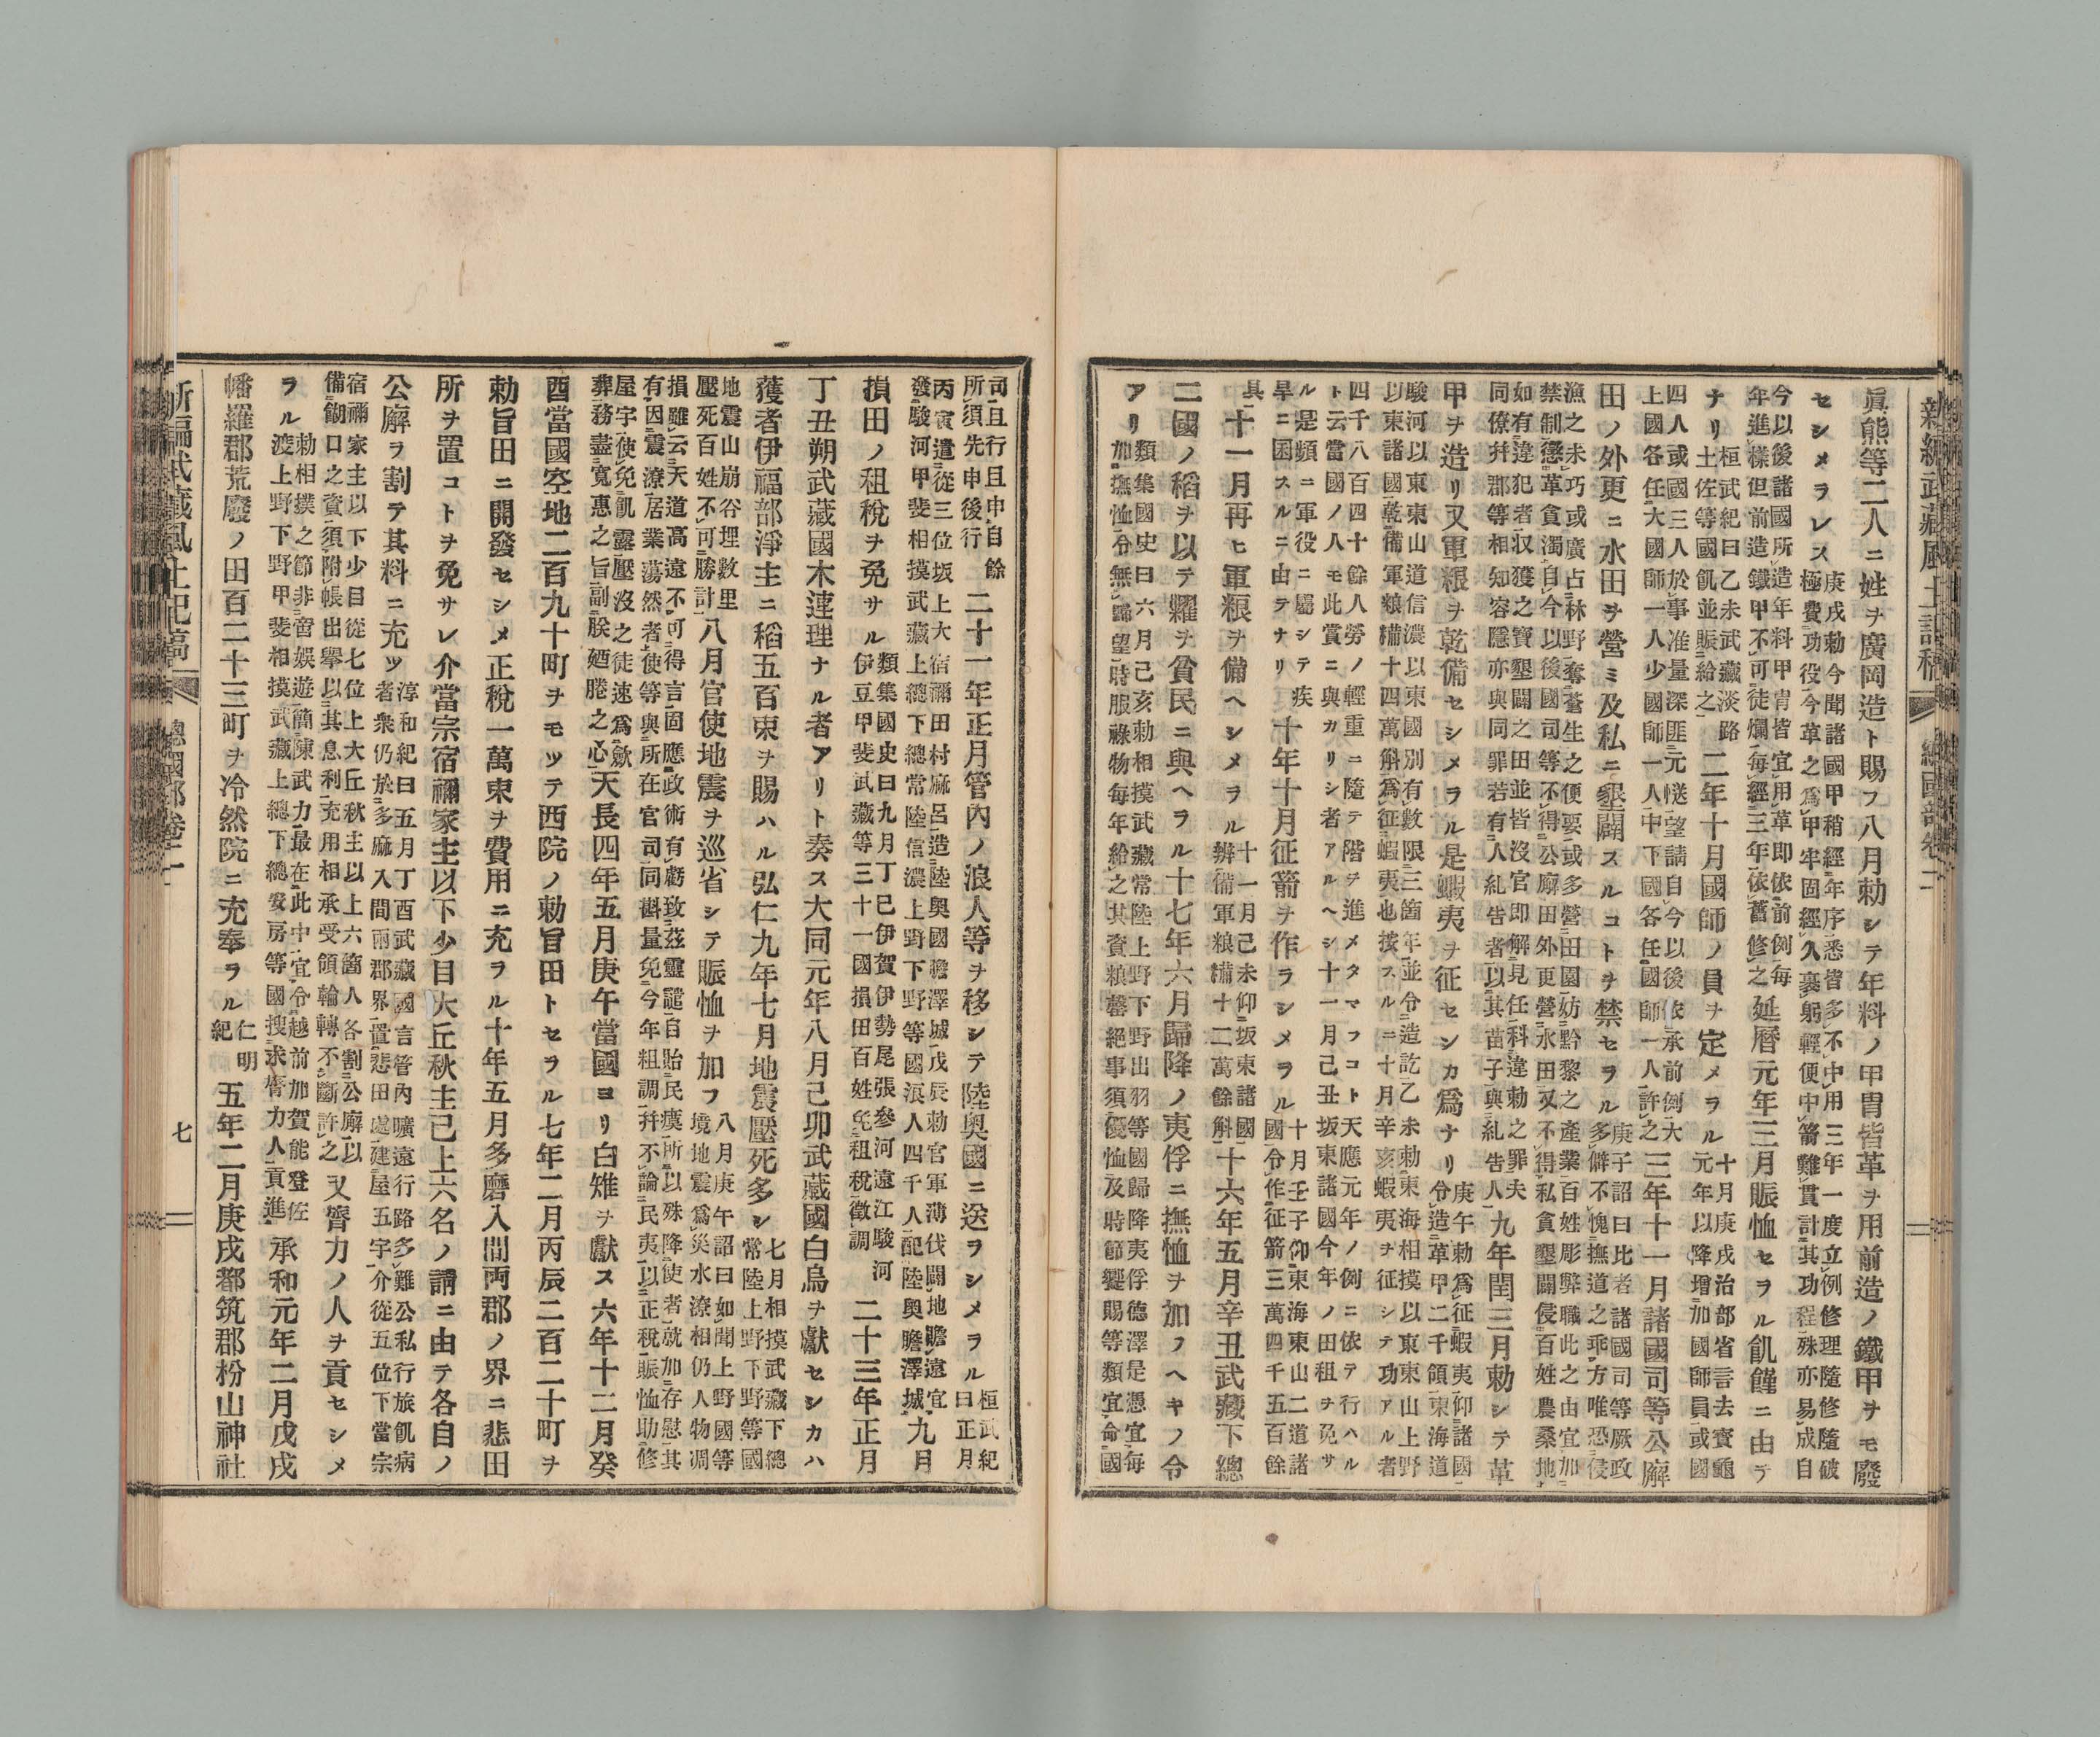 新編武藏風土記稿 總國部卷二
眞熊等二人ニ姓ヲ廣岡造ト賜フ八月勅シテ年料ノ甲冑皆革ヲ用前造ノ鐵甲ヲモ廢
セシメラレス
庚戌勅今聞諸國甲稍經年序悉皆多不中用三年一度立例修理隨修隨破
極費功役今革之爲甲牢固經久裹躬輕便中箭難貫計其功程殊亦易成自
今以後諸國所造年料甲冑皆宜用革即依前例毎
年進樣但前造鐵甲不可徒爛毎經三年依舊修之
延曆元年三月賑恤セラル飢饉ニ由テ
ナリ
桓武紀曰乙未武藏淡路
土佐等國飢並賑給之
二年十月國師ノ員ヲ定メラル
十月庚戌治部省言去寳龜
元年以降增加國師員或國
四人或國三人於事准量深匪元愜望請自今以後依承前例大
上國各任大國師一人少國師一人中下國各任國師一人許之
三年十一月諸國司等公廨
田ノ外更ニ水田ヲ營ミ及私ニ墾闢スルコトヲ禁セラル
庚子詔曰比者諸國司等厥政
多僻不愧撫道之乖方唯恐侵
漁之未巧或廣占林野奪蒼生之便要或多營田園妨黔黎之產業百姓彫弊職此之由宜加
禁制懲革貪濁自今以後國司等不得公廨田外更營水田又不得私貪墾闢侵百姓農桑地
如有違犯者収獲之實墾闢之田並皆沒官即解見任科違勅之罪夫
同僚幷郡等相知容隱亦與同罪若有人糺告者以其苗子與糺告人
九年閏三月勅シテ革
甲ヲ造リ又軍粮ヲ乾備セシメラル是蝦夷ヲ征センカ爲ナリ
庚午勅爲征蝦夷仰諸國
令造革甲二千領東海道
駿河以東東山道信濃以東國別有數限三箇年並令造訖乙未勅東海相摸以東東山上野
以東諸國乾備軍粮糒十四萬斛爲征蝦夷也按スルニ十月辛亥蝦夷ヲ征シテ功アル者
四千八百四十餘人勞ノ輕重ニ隨テ階ヲ進メタマフコト天應元年ノ例ニ依テ行ハル
ト云當國ノ人モ此賞ニ與カリシ者アルヘシ十一月己丑坂東諸國今年ノ田租ヲ免サ
ル是頻ニ軍役ニ屬シテ疾
旱ニ困スルニ由テナリ
十年十月征箭ヲ作ラシメラル
十月壬子仰東海東山二道諸
國令作征箭三萬四千五百餘
具
十一月再ヒ軍粮ヲ備ヘシメラル
十一月己未仰坂東諸國
辦備軍粮糒十二萬餘斛
十六年五月辛丑武藏下總
二國ノ稻ヲ以テ糶ヲ貧民ニ與ヘラル十七年六月歸降ノ夷俘ニ撫恤ヲ加フヘキノ令
アリ
類集國史曰六月己亥勅相摸武藏常陸上野下野出羽等國歸降夷俘德澤是憑宜毎
加撫恤令無歸望時服祿物毎年給之其資粮罄絕事須優恤及時節饗賜等類宜命國
司且行且申自餘
所須先申後行
二十一年正月管內ノ浪人等ヲ移シテ陸奧國ニ送ラシメラル
桓武紀
曰正月
丙寅遣從三位坂上大宿禰田村麻呂造陸奧國膽澤城戊辰勅官軍薄伐闢地瞻遠宜
發駿河甲斐相摸武藏上總下總常陸信濃上野下野等國浪人四千人配陸奧膽澤城
九月
損田ノ租稅ヲ免サル
類集國史曰九月丁巳伊賀伊勢尾張參河遠江駿河
伊豆甲斐武藏等三十一國損田百姓免租稅徵調
二十三年正月
丁丑朔武藏國木連理ナル者アリト奏ス大同元年八月己卯武藏國白烏ヲ獻セシカハ
獲者伊福部淨主ニ稻五百束ヲ賜ハル弘仁九年七月地震壓死多シ
七月相摸武藏下總
常陸上野下野等國
地震山崩谷埋數里
壓死百姓不可勝計
八月官使地震ヲ巡省シテ賑恤ヲ加フ
八月庚午詔曰如聞上野國等
境地震爲災水潦相仍人物凋
損雖云天道高遠不可得言固應政術有虧致茲靈譴自貽民瘼所以殊降使者就加存慰其
有因震潦居業蕩然者使等與所在官司同斟量免今年租調幷不論民夷以正稅賑恤助修
屋宇使免飢露壓沒之徒速爲歛
葬務盡寬惠之旨副朕廼睠之心
天長四年五月庚午當國ヨリ白雉ヲ獻ス六年十二月癸
酉當國空地二百九十町ヲモツテ西院ノ勅旨田トセラル七年二月丙辰二百二十町ヲ
勅旨田ニ開發セシメ正稅一萬束ヲ費用ニ充ラル十年五月多磨入間兩郡ノ界ニ悲田
所ヲ置コトヲ免サレ介當宗宿禰家主以下少目大丘秋主已上六名ノ請ニ由テ各自ノ
公廨ヲ割テ其料ニ充ツ
淳和紀曰五月丁酉武藏國言管內曠遠行路多難公私行旅飢病
者衆仍於多麻入間兩郡界置悲田處建屋五宇介從五位下當宗
宿禰家主以下少目從七位上大丘秋主以上六箇人各割公廨以
備餬口之資須附帳出擧以其息利充用相承受領輪轉不斷許之
又膂力ノ人ヲ貢セシメ
ラル
勅相撲之節非啻娛遊簡陳武力最在此中宜令越前加賀能登佐
渡上野下野甲斐相摸武藏上總下總安房等國搜求膂力人貢進
承和元年二月戊戌
幡羅郡荒廢ノ田百二十三町ヲ冷然院ニ充奉ラル
仁明
紀
五年二月庚戌都筑郡枌山神社
新編武藏風土記稿 總國部卷二 七